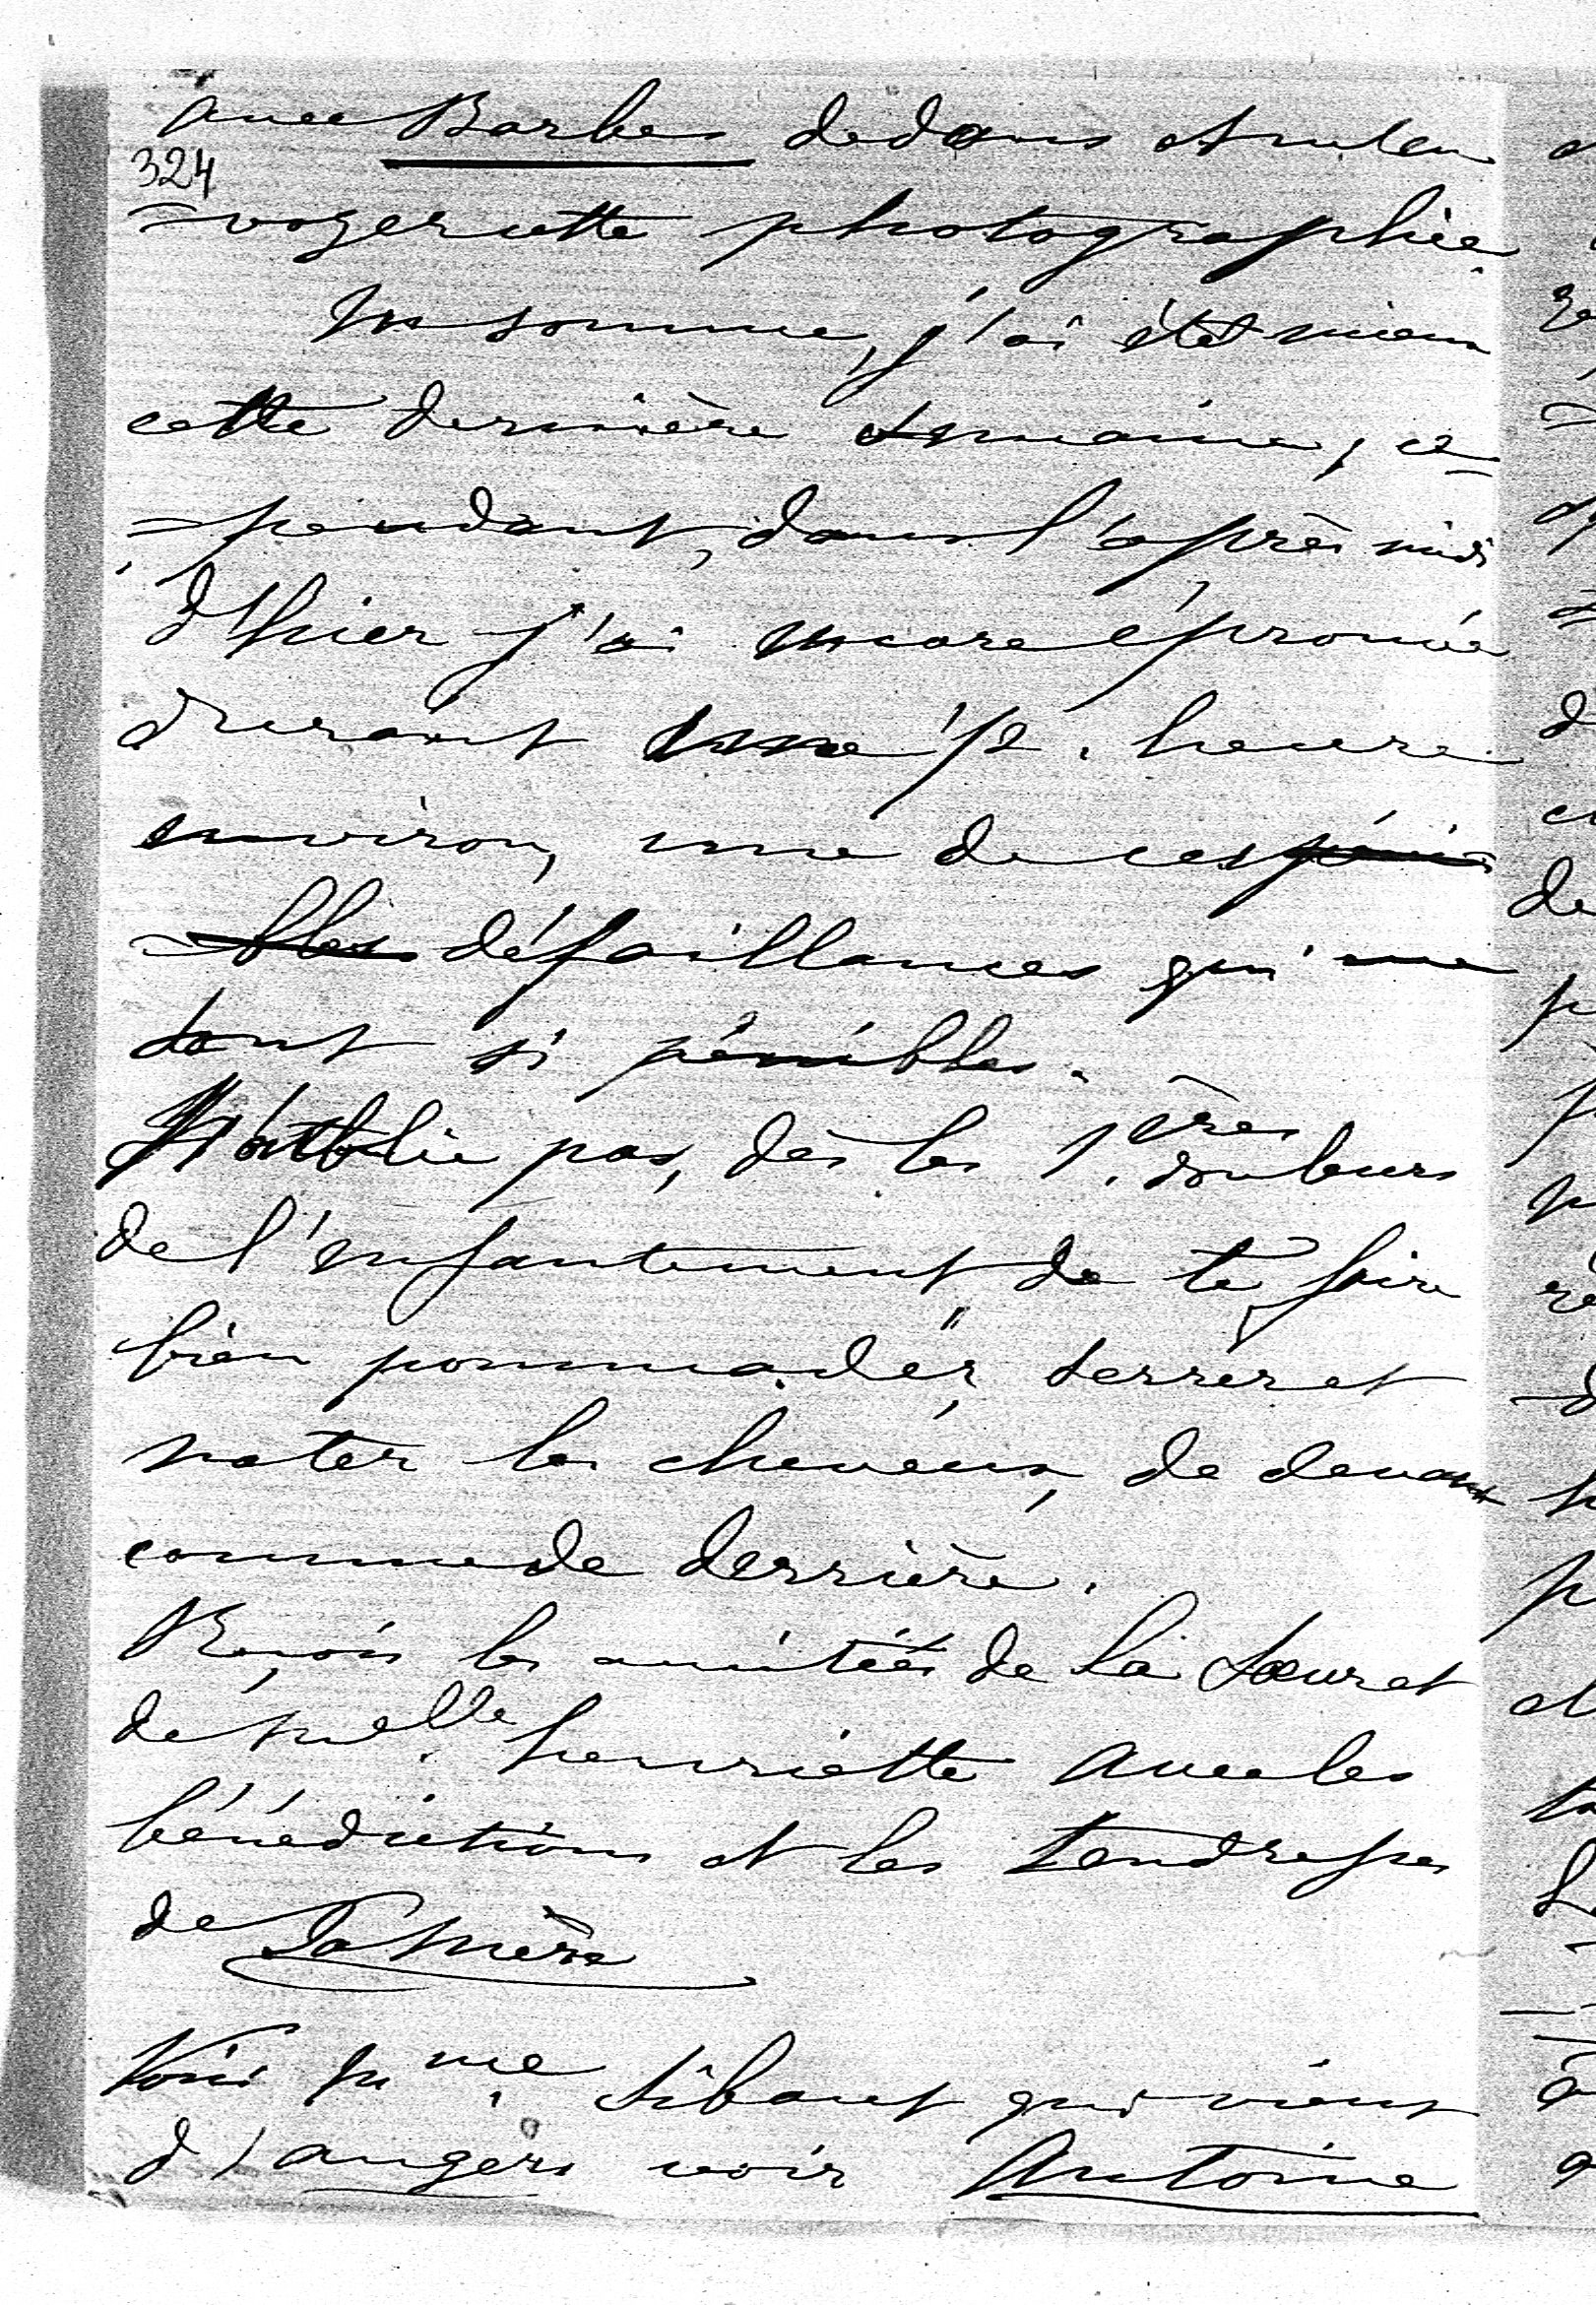 avec Barbes dedans et m'en
324
=voyer cette photographie.
En somme, j'ai été mieux
cette dernière semaine, ce=
=pendant, dans l'après midi
d'hier j'ai encore éprouvé
durant une 1/2 . heure
environ, une de ces péni=
=bles défaillances qui me
sont si pénibles.
N'oublie pas, dès les 1.ères douleurs
de l'enfantement de te faire
bien pommader, serrer et
nater les cheveux, de devant
comme de derrière.
Reçois les amitiés de la Soeur et
de Melle. henriette avec les
bénédictions et les tendresses
de Ta Mère
Voici Mme. Sibaut qui vient
d'angers voir Antoine